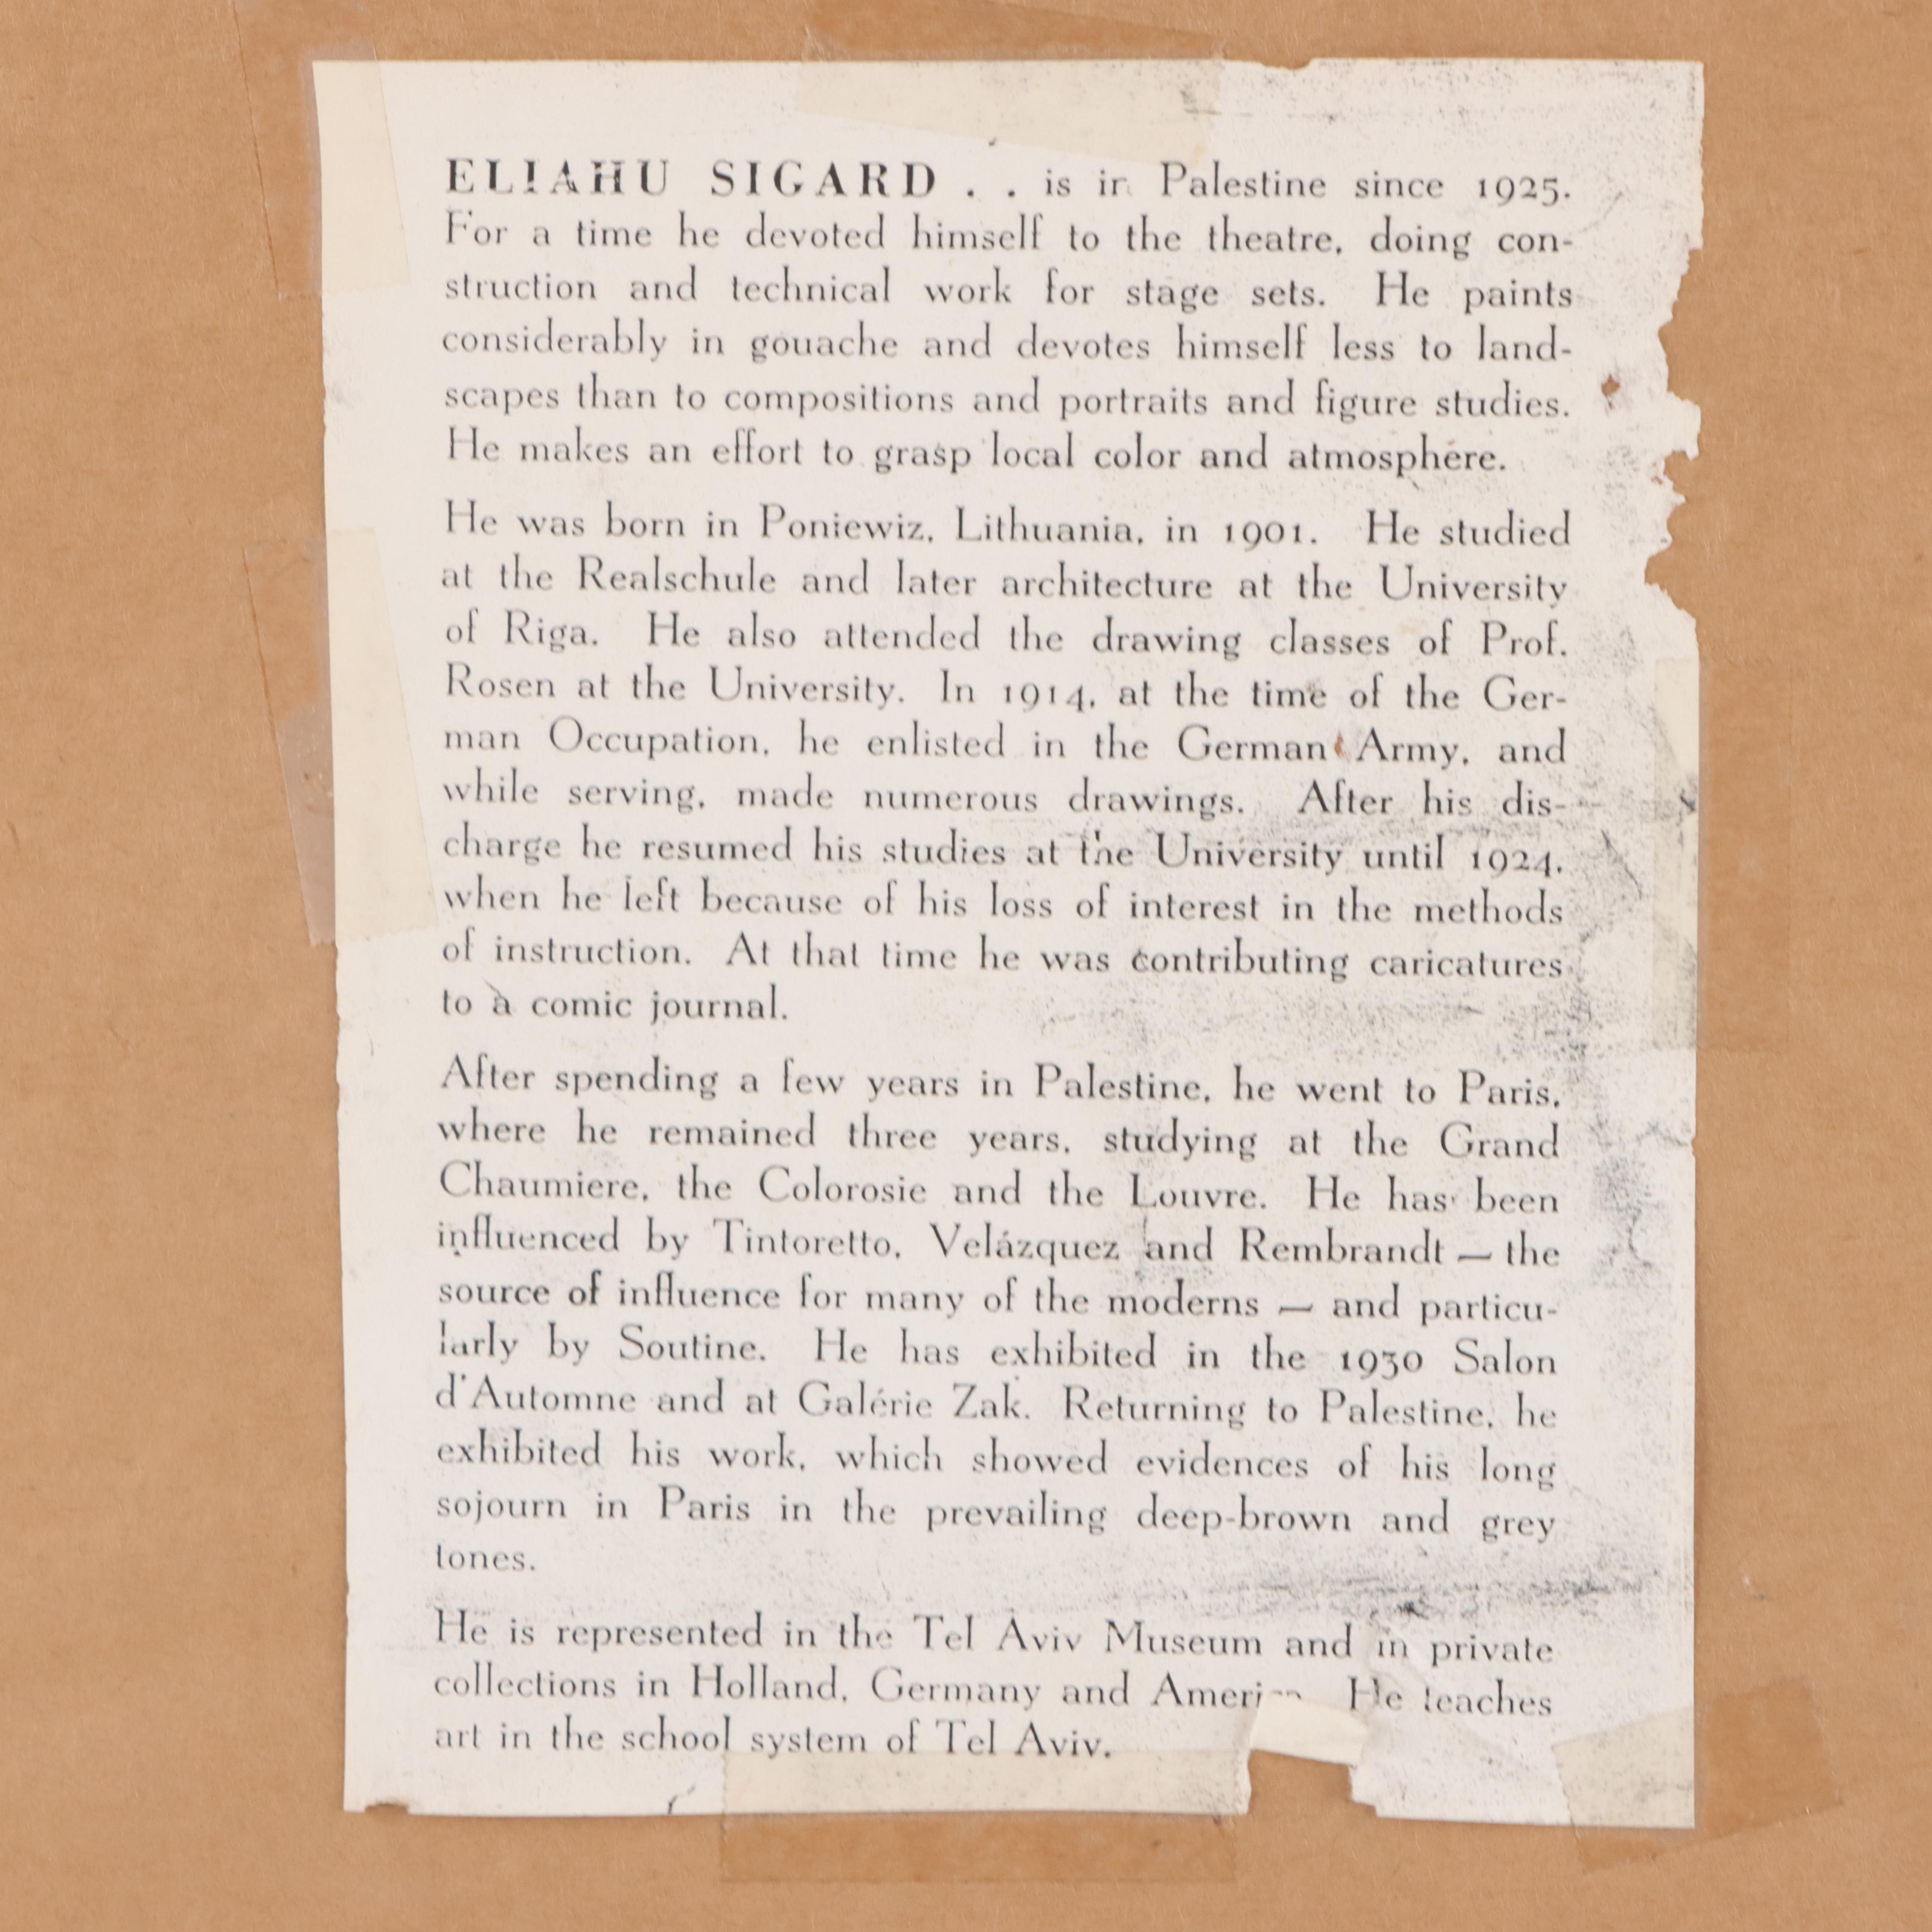 ELIAHU SIGARD . . is in Palestine since 1925.
For a time he devoted himself to the theatre, doing con-
struction and technical work for stage sets. He paints
considerably in gouache and devotes himself less to land-
scapes than to compositions and portraits and figure studies.
He makes an effort to grasp local color and atmosphere.
He was born in Poniewiz, Lithuania, in 1901. He studied
at the Realschule and later architecture at the University
of Riga. He also attended the drawing classes of Prof.
Rosen at the University. In 1914, at the time of the Ger-
man Occupation, he enlisted in the German Army, and
while serving, made numerous drawings. After his dis-
charge he resumed his studies at the University until 1924,
when he left because of his loss of interest in the methods
of instruction. At that time he was contributing caricatures
to a comic journal.
After spending a few years in Palestine, he went to Paris,
where he remained three years, studying at the Grand
Chaumiere, the Colorosie and the Louvre. He has been
influenced by Tintoretto, Velázquez and Rembrandt — the
source of influence for many of the moderns — and particu-
larly by Soutine. He has exhibited in the 1930 Salon
d'Automne and at Galérie Zak. Returning to Palestine, he
exhibited his work, which showed evidences of his long
sojourn in Paris in the prevailing deep-brown and grey
tones.
He is represented in the Tel Aviv Museum and in private
collections in Holland, Germany and He teaches
art in the school system of Tel Aviv.